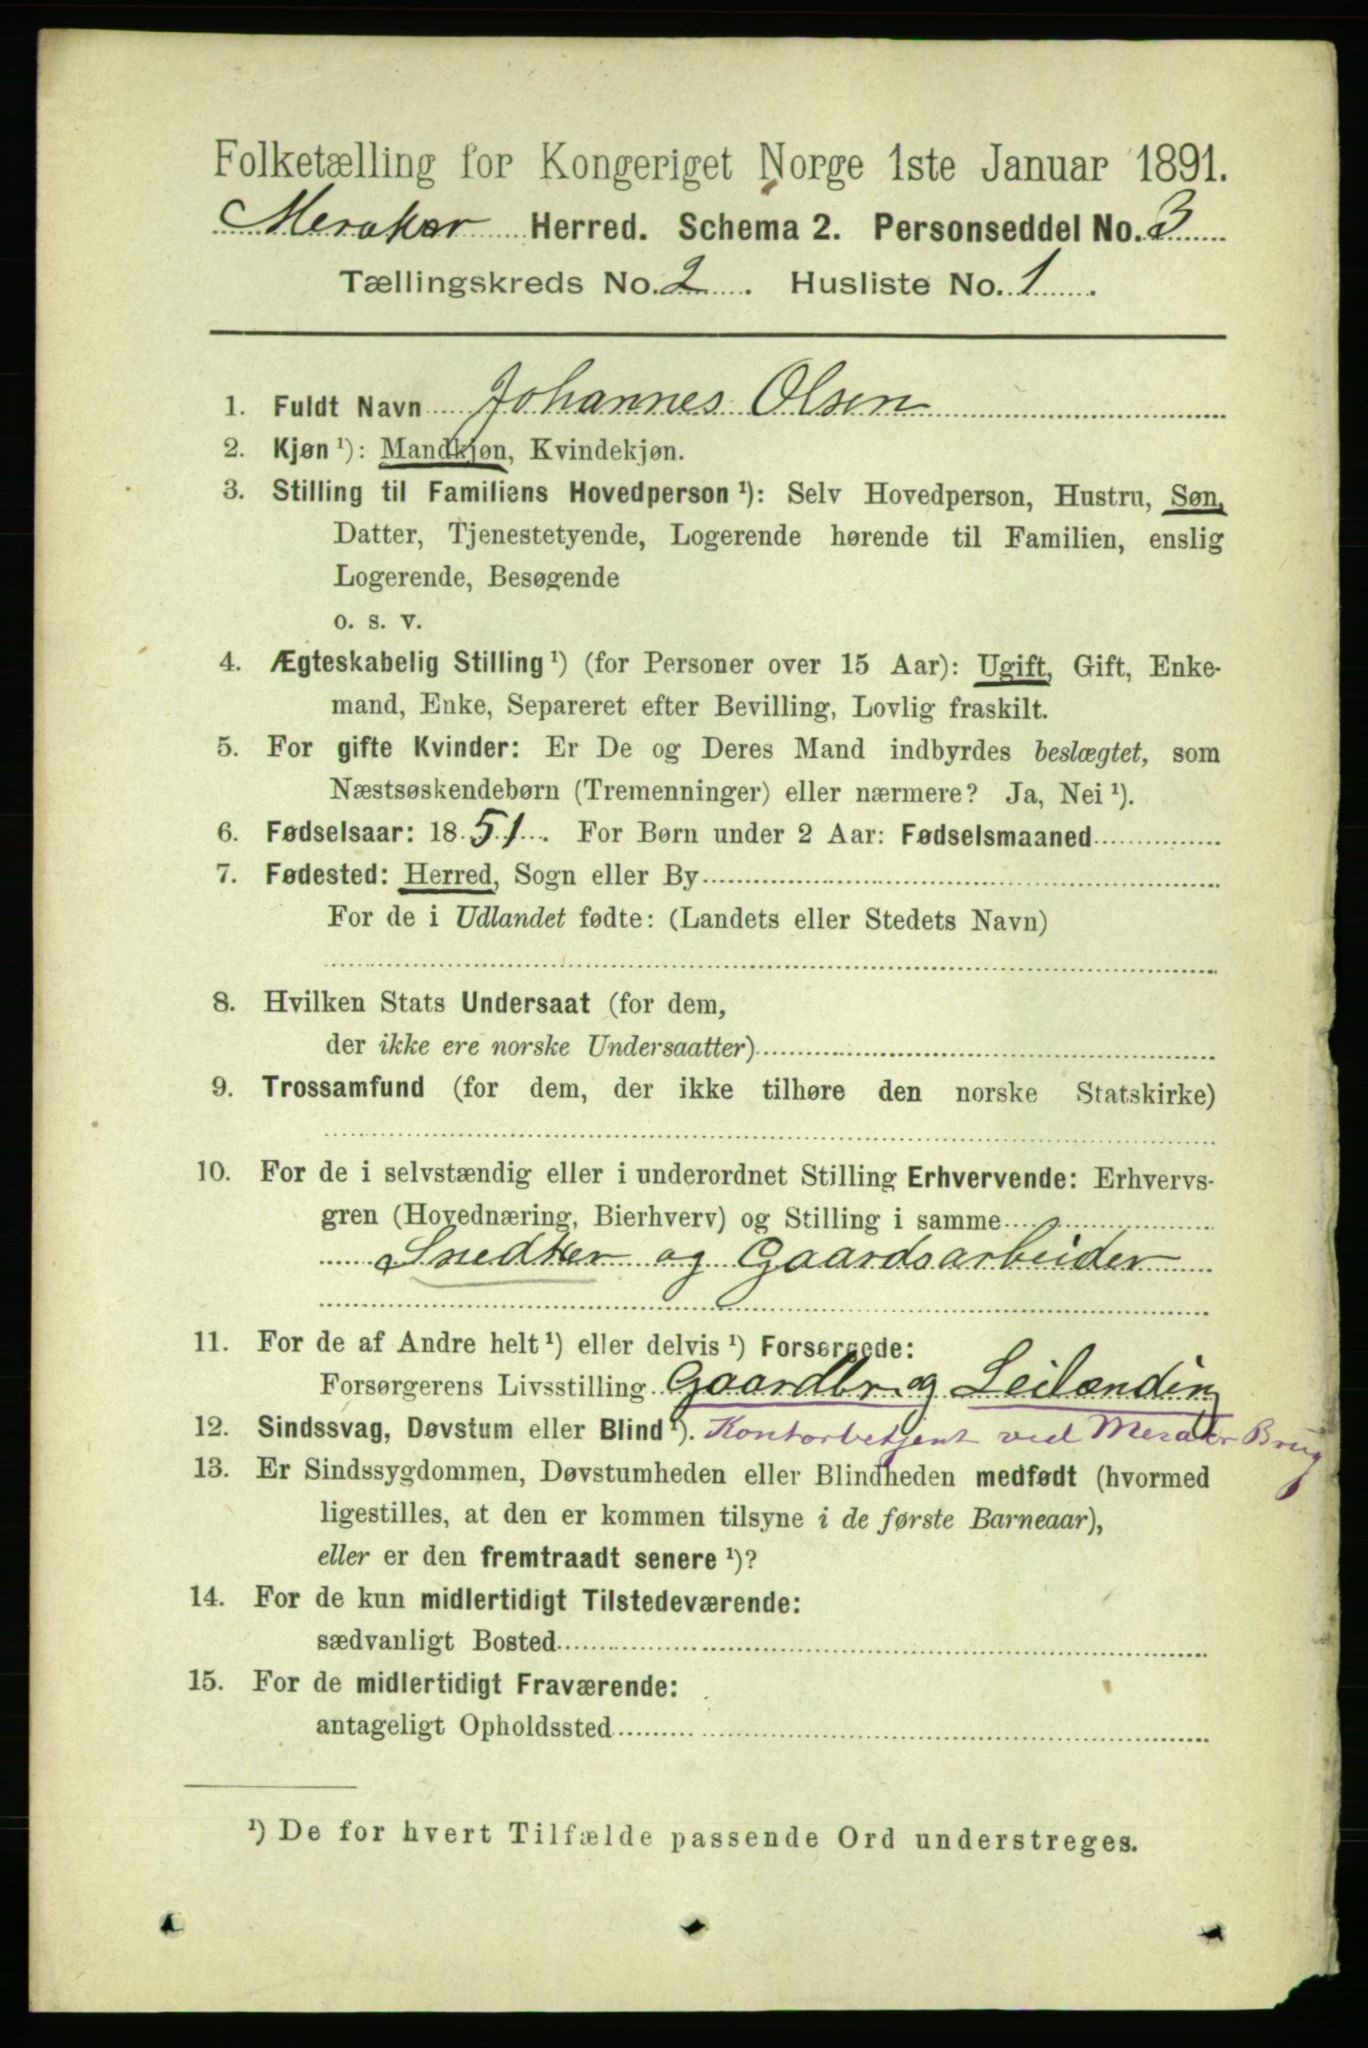 Folketælling for Kongeriget Norge 1ste Januar 1891.
Meraker Herred. Schema 2. Personseddel No. 3
Tællingskreds No. 2. Husliste No. 1.
1. Fuldt Navn Johannes Olsen
2. Kjøn ¹): Mandkjøn, Kvindekjøn.
3. Stilling til Familiens Hovedperson ¹): Selv Hovedperson, Hustru, Søn,
Datter, Tjenestetyende, Logerende hørende til Familien, enslig
Logerende, Besøgende
o. s. v.
4. Ægteskabelig Stilling ¹) (for Personer over 15 Aar): Ugift, Gift, Enke-
mand, Enke, Separeret efter Bevilling, Lovlig fraskilt.
5. For gifte Kvinder: Er De og Deres Mand indbyrdes beslægtet, som
Næstsøskendebørn (Tremenninger) eller nærmere? Ja, Nei ¹).
6. Fødselsaar: 1851. For Børn under 2 Aar: Fødselsmaaned
7. Fødested: Herred, Sogn eller By
For de i Udlandet fødte: (Landets eller Stedets Navn)
8. Hvilken Stats Undersaat (for dem,
der ikke ere norske Undersaatter)
9. Trossamfund (for dem, der ikke tilhøre den norske Statskirke)
10. For de i selvstændig eller i underordnet Stilling Erhvervende: Erhvervs-
gren (Hovednæring, Bierhverv) og Stilling i samme
Snedker og Gaardsarbeider
11. For de af Andre helt ¹) eller delvis ¹) Forsørgede:
Forsørgerens Livsstilling Gaardbr. og Leilænding
12. Sindssvag, Døvstum eller Blind ¹). Kontorbetjent ved Meraker Brug
13. Er Sindssygdommen, Døvstumheden eller Blindheden medfødt (hvormed
ligestilles, at den er kommen tilsyne i de første Barneaar),
eller er den fremtraadt senere ¹)?
14. For de kun midlertidigt Tilstedeværende:
sædvanligt Bosted
15. For de midlertidigt Fraværende:
antageligt Opholdssted
¹) De for hvert Tilfælde passende Ord understreges.